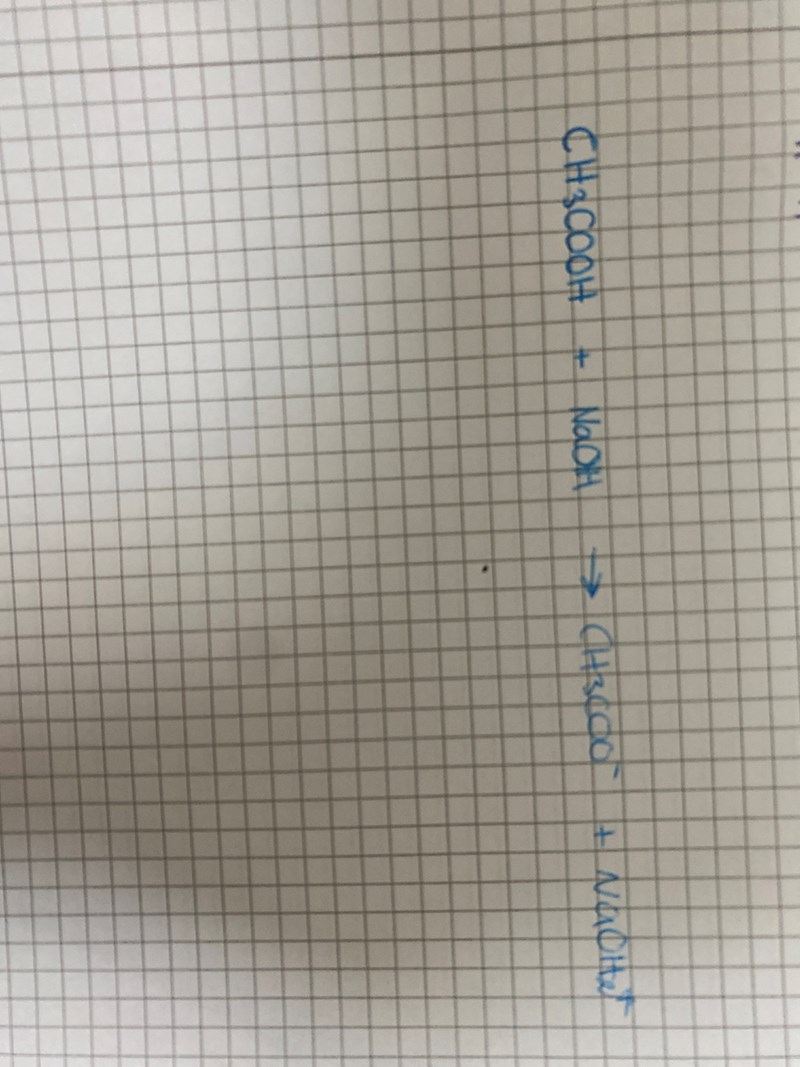 CH3COOH + NaOH → CH3COO⁻ + NaOH2⁺